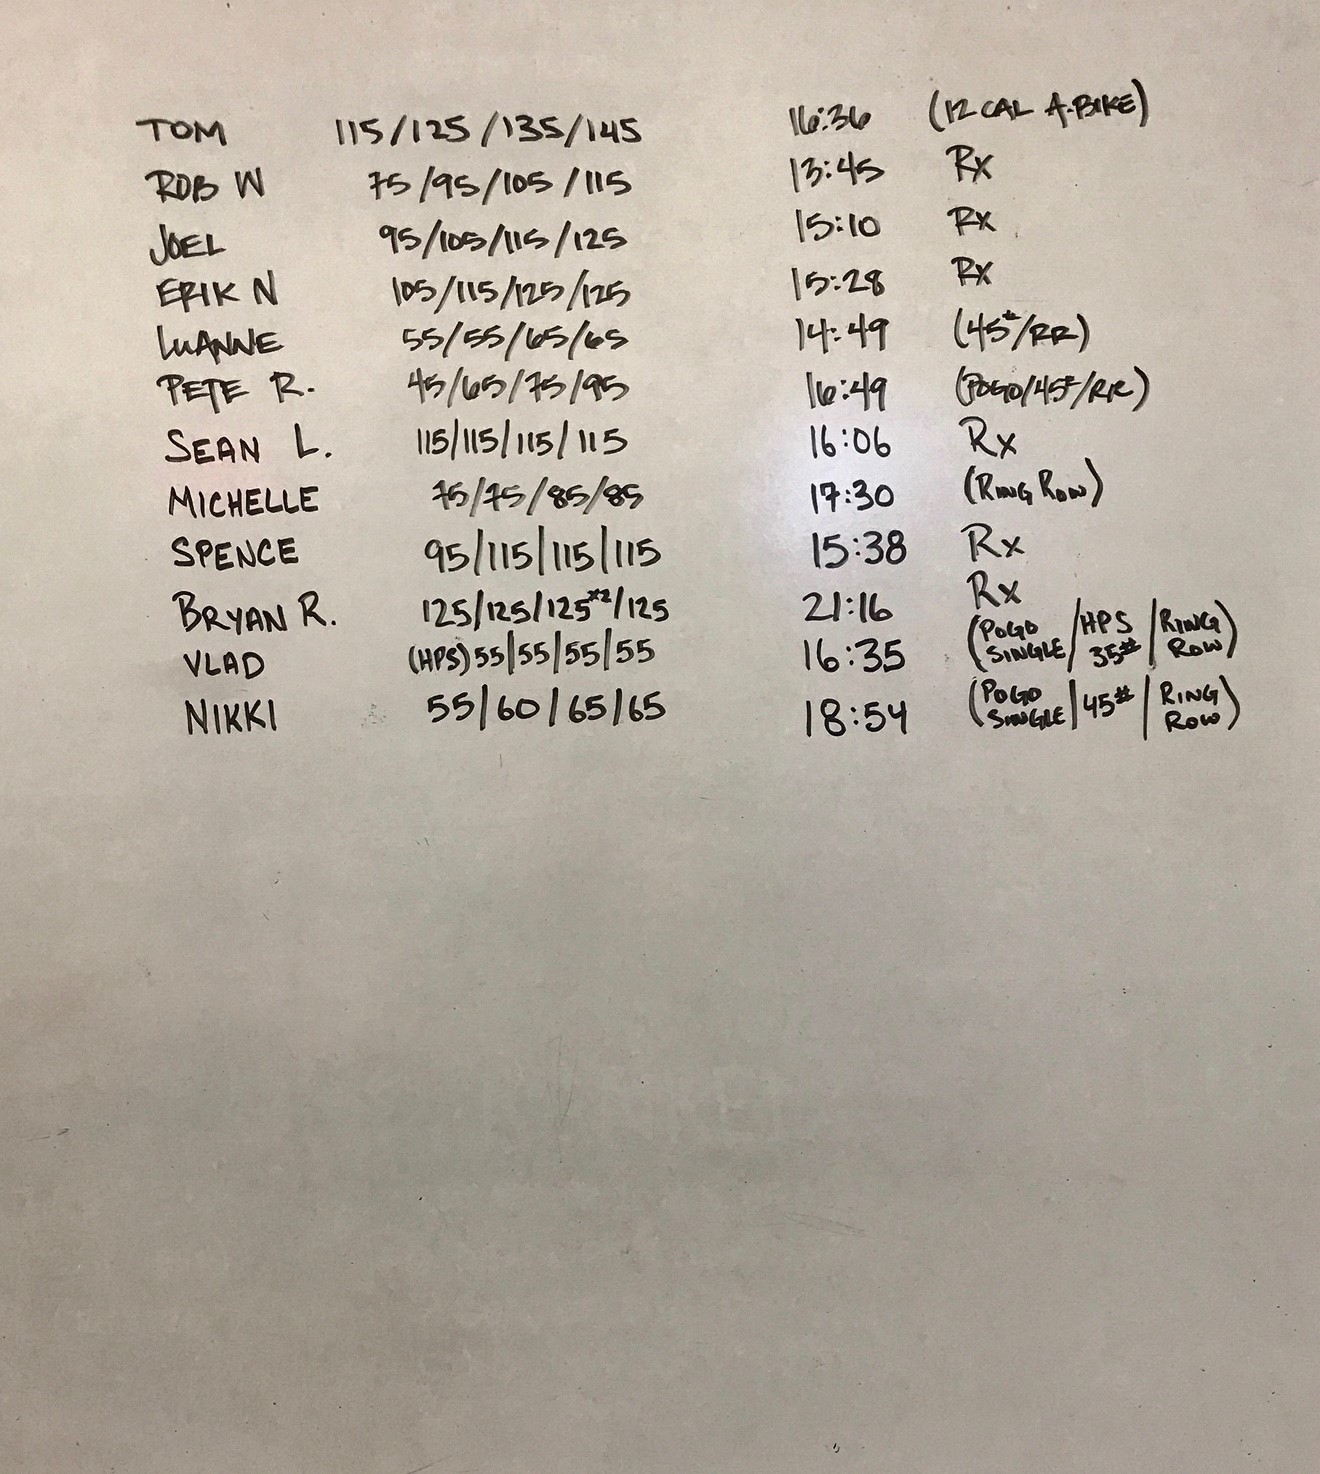 TOM 115/125/135/145 16:36 (12 CAL A-BIKE)
ROB W 75/95/105/115 13:45 Rx
JOEL 95/105/115/125 15:10 Rx
ERIK N 105/115/125/125 15:28 Rx
LUANNE 55/55/65/65 14:49 (45#/RR)
PETE R. 45/65/75/95 16:49 (POGO/45#/RR)
SEAN L. 115/115/115/115 16:06 Rx
MICHELLE 75/75/85/85 17:30 (RING ROW)
SPENCE 95/115/115/115 15:38 Rx
BRYAN R. 125/125/125x2/125 21:16 Rx
VLAD (HPS) 55/55/55/55 16:35 (POGO SINGLE/HPS 35#/RING ROW)
NIKKI 55/60/65/65 18:54 (POGO SINGLE/45#/RING ROW)